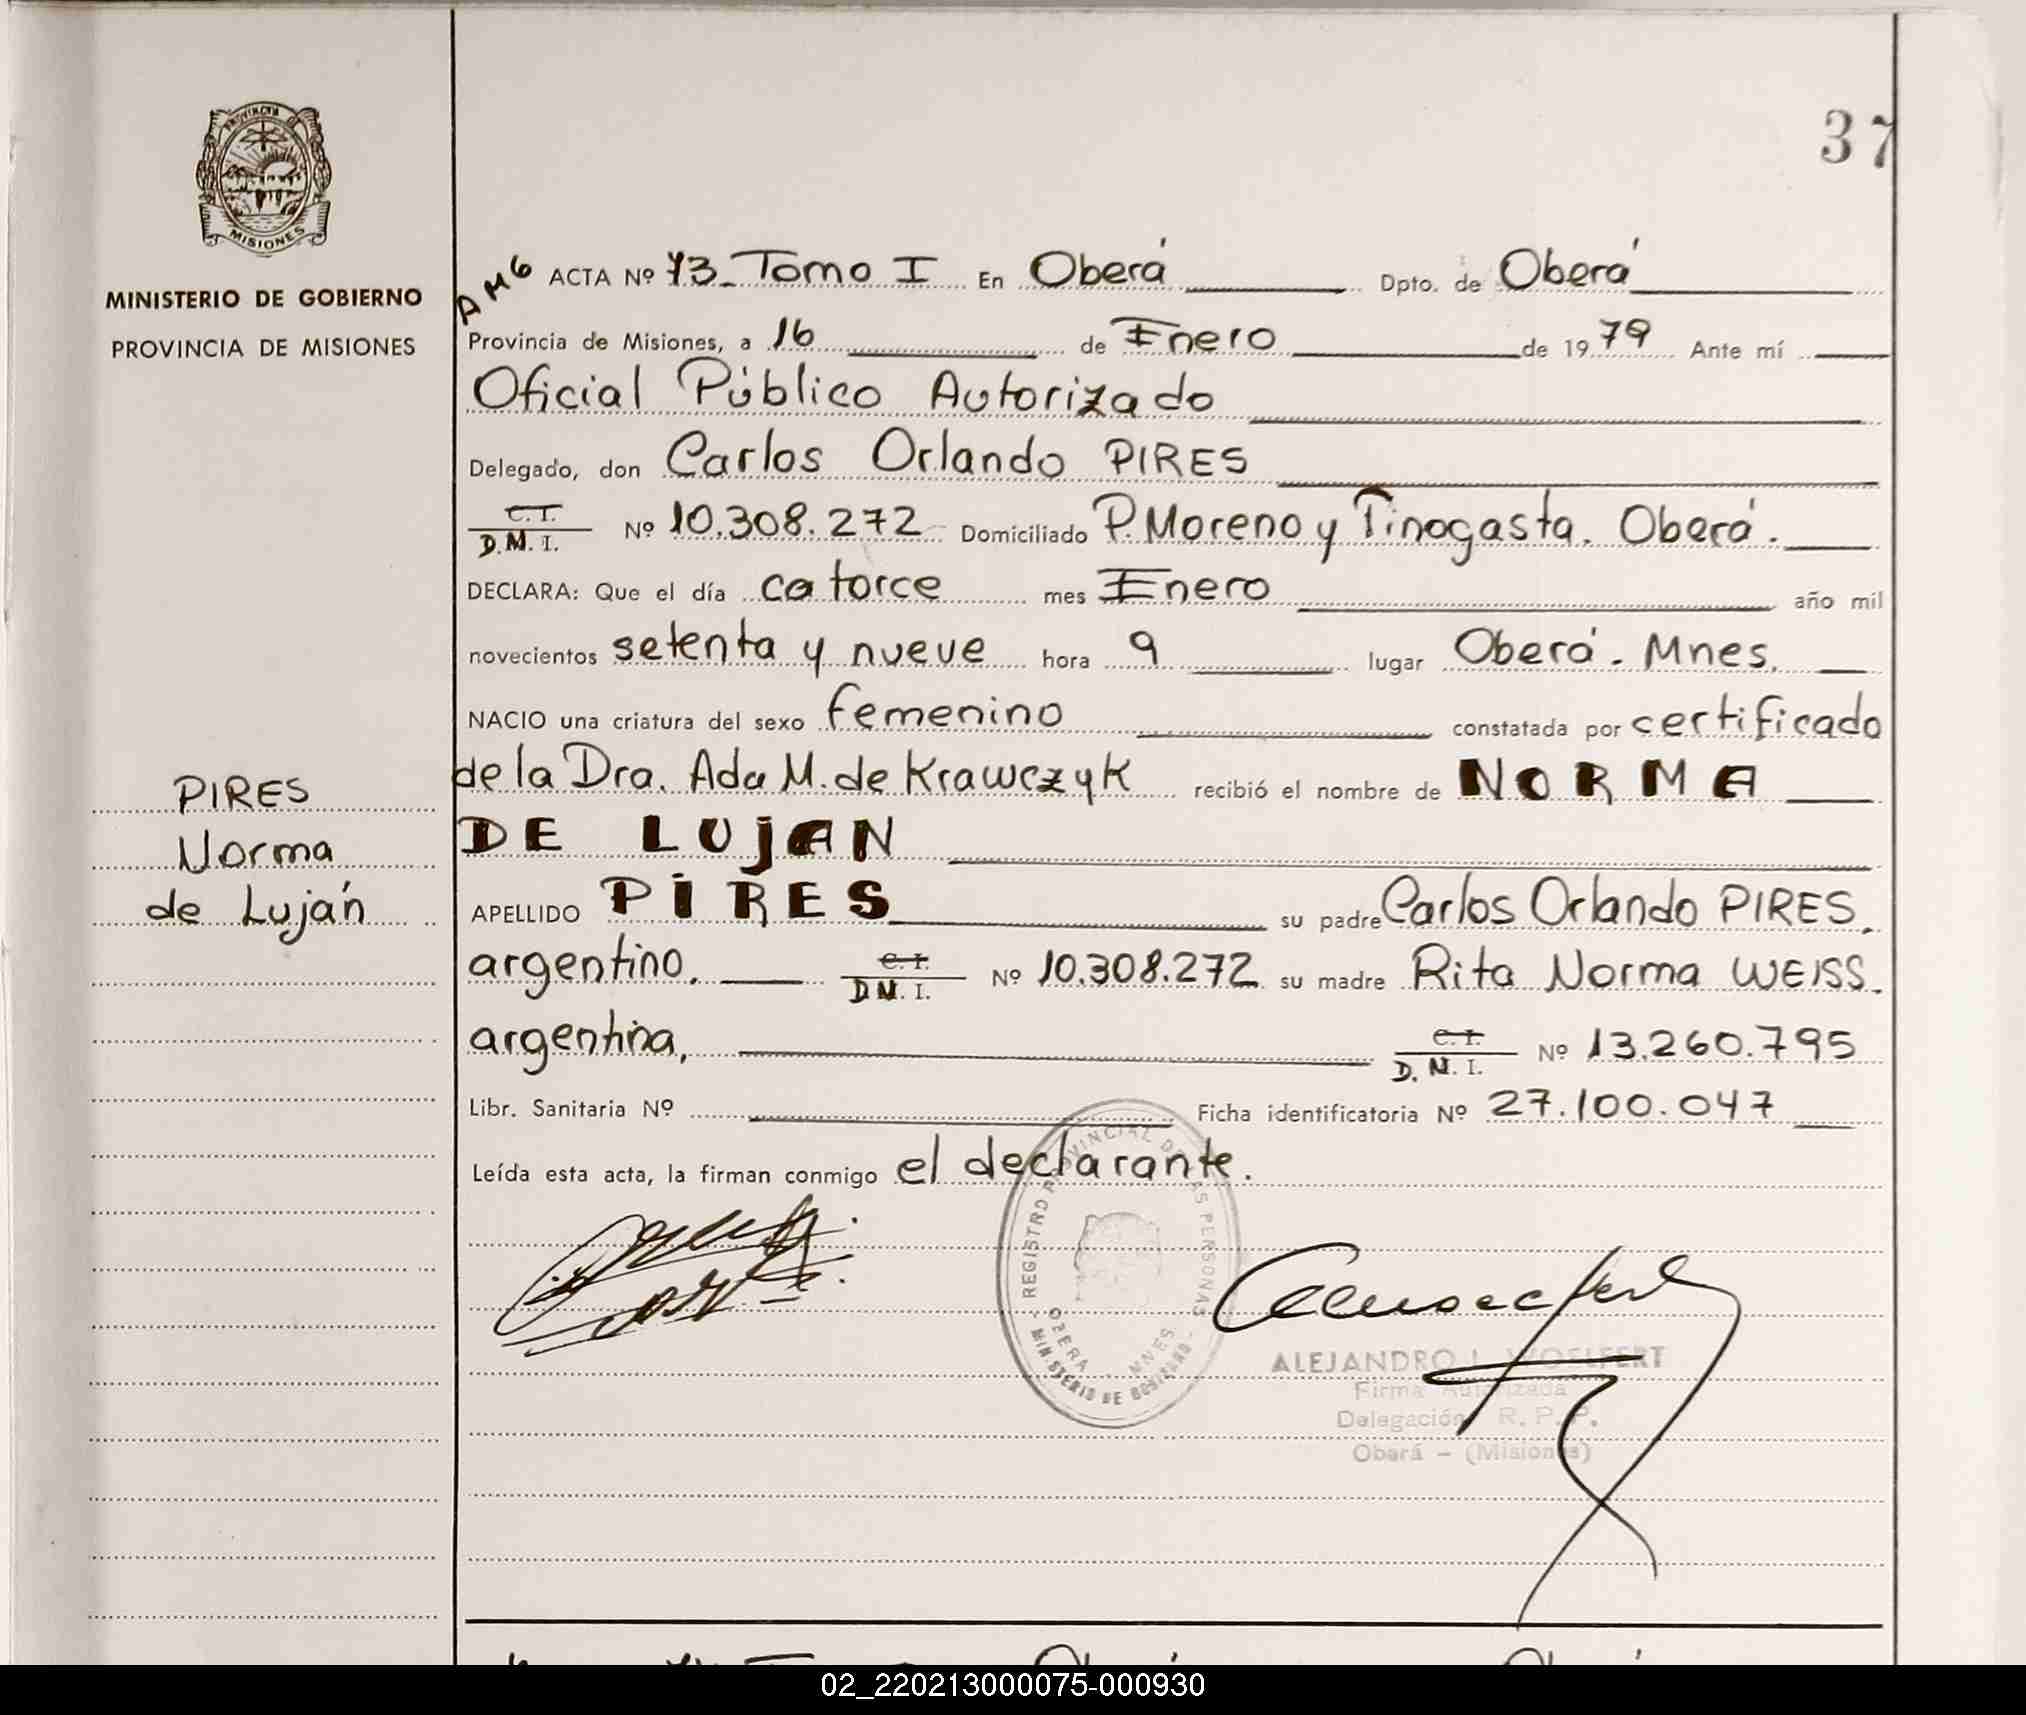 37
PROVINCIA DE
MISIONES
MINISTERIO DE GOBIERNO
PROVINCIA DE MISIONES
PIRES
Norma
de Luján
AMG ACTA Nº 73_ Tomo I En Oberá Dpto. de Oberá
Provincia de Misiones, a 16 de Enero de 1979 Ante mí
Oficial Público Autorizado
Delegado, don Carlos Orlando PIRES
C.I. D.M.I. Nº 10.308.272 Domiciliado P. Moreno y Tinogasta. Oberá.
DECLARA: Que el día catorce mes Enero año mil
novecientos setenta y nueve hora 9 lugar Oberá. Mnes.
NACIO una criatura del sexo femenino constatada por certificado
de la Dra. Ada M. de Krawczyk recibió el nombre de NORMA
DE LUJAN
APELLIDO PIRES su padre Carlos Orlando PIRES,
argentino, C.I. D.N.I. Nº 10.308.272 su madre Rita Norma WEISS.
argentina, C.I. D.N.I. Nº 13.260.795
Libr. Sanitaria Nº Ficha identificatoria Nº 27.100.047
Leída esta acta, la firman conmigo el declarante.
REGISTRO PROVINCIAL DE LAS PERSONAS
OBERA - MNES
MINISTERIO DE GOBIERNO
ALEJANDRO L. WOELFERT
Firma Autorizada
Delegación R. P. P.
Oberá - (Misiones)
02_220213000075-000930